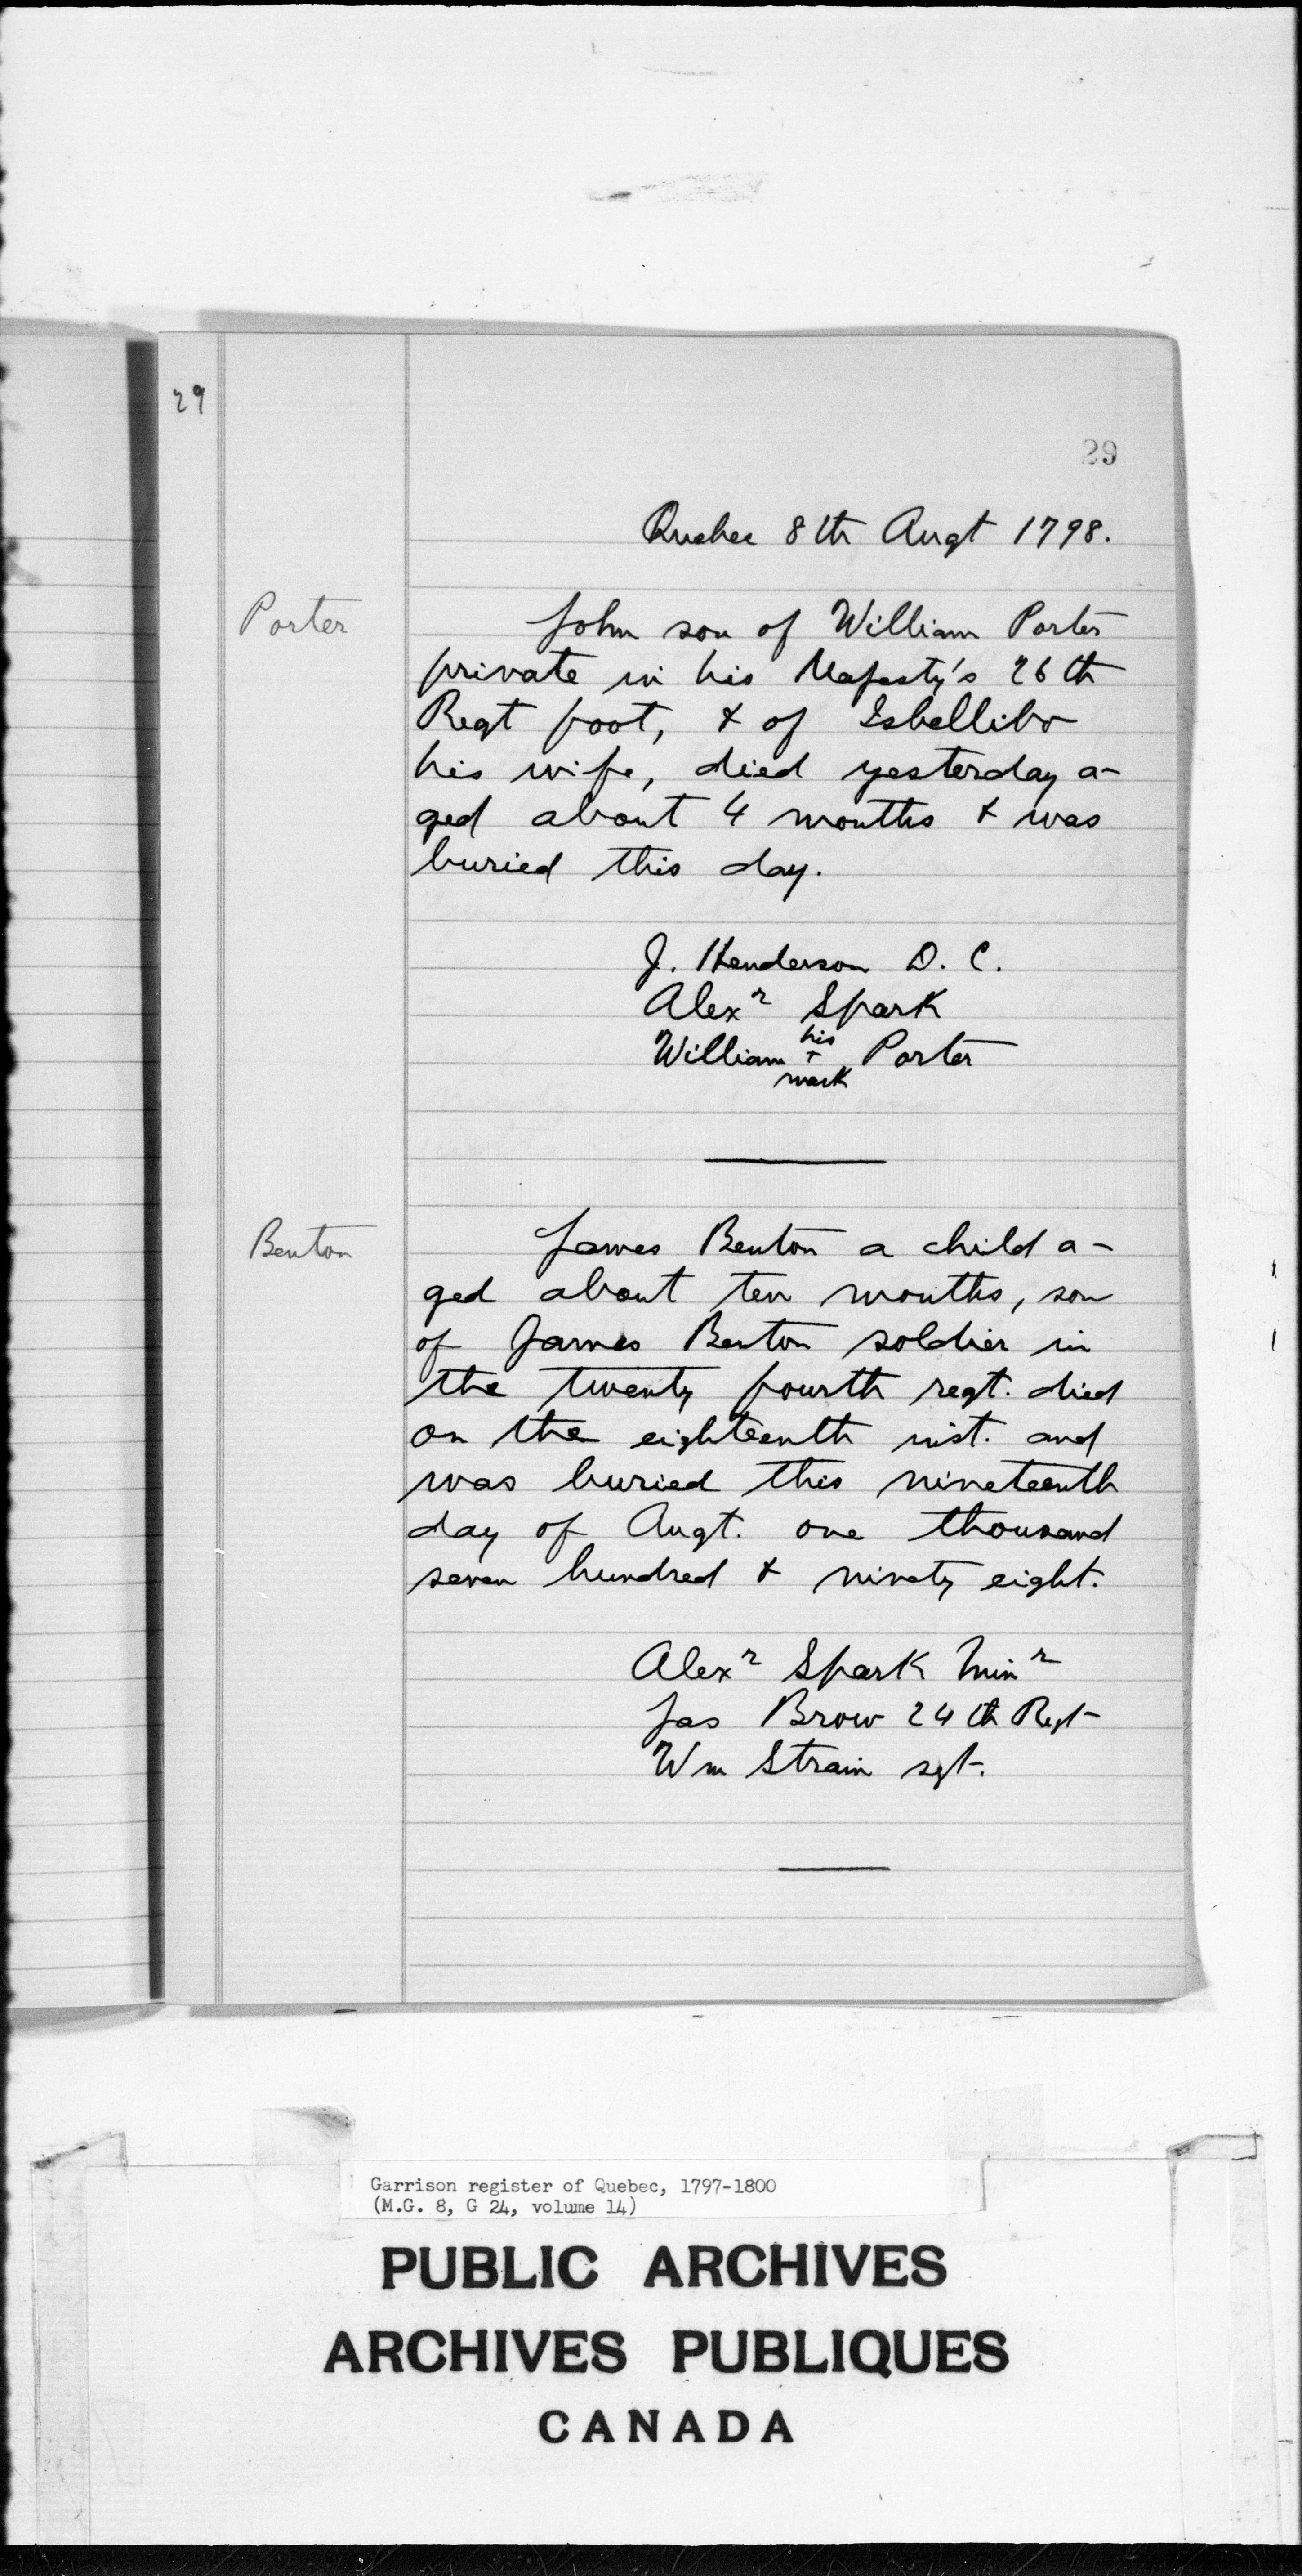 29
29
Quebec 8th Augt 1798.
Porter
John son of William Porter
private in his Majesty's 26th
Regt foot, & of Isbellibr
his wife, died yesterday a-
ged about 4 months & was
buried this day.
J. Henderson D. C.
Alexr Spark
William his + mark Porter
Benton
James Benton a child a-
ged about ten months, son
of James Benton soldier in
the twenty fourth regt. died
on the eighteenth inst. and
was buried this nineteenth
day of Augt. one thousand
seven hundred & ninety eight.
Alexr Spark Minr
Jas Brow 24th Regt
Wm Strain sgt.
Garrison register of Quebec, 1797-1800
(M.G. 8, G 24, volume 14)
PUBLIC ARCHIVES
ARCHIVES PUBLIQUES
CANADA